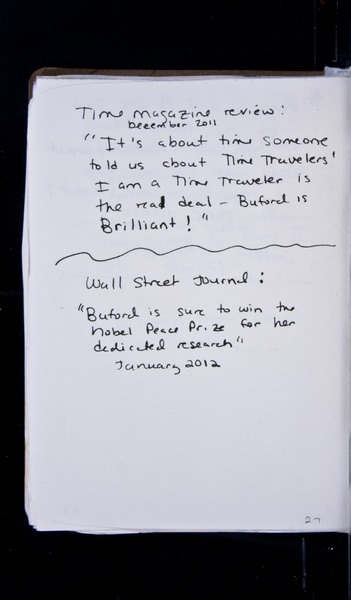 Time magazine review:
December 2011
"It's about time someone
told us about Time Travelers!
I am a Time Traveler is
the real deal - Buford is
Brilliant!"
Wall Street Journal:
"Buford is sure to win the
Nobel Peace Prize for her
dedicated research"
January 2012
27